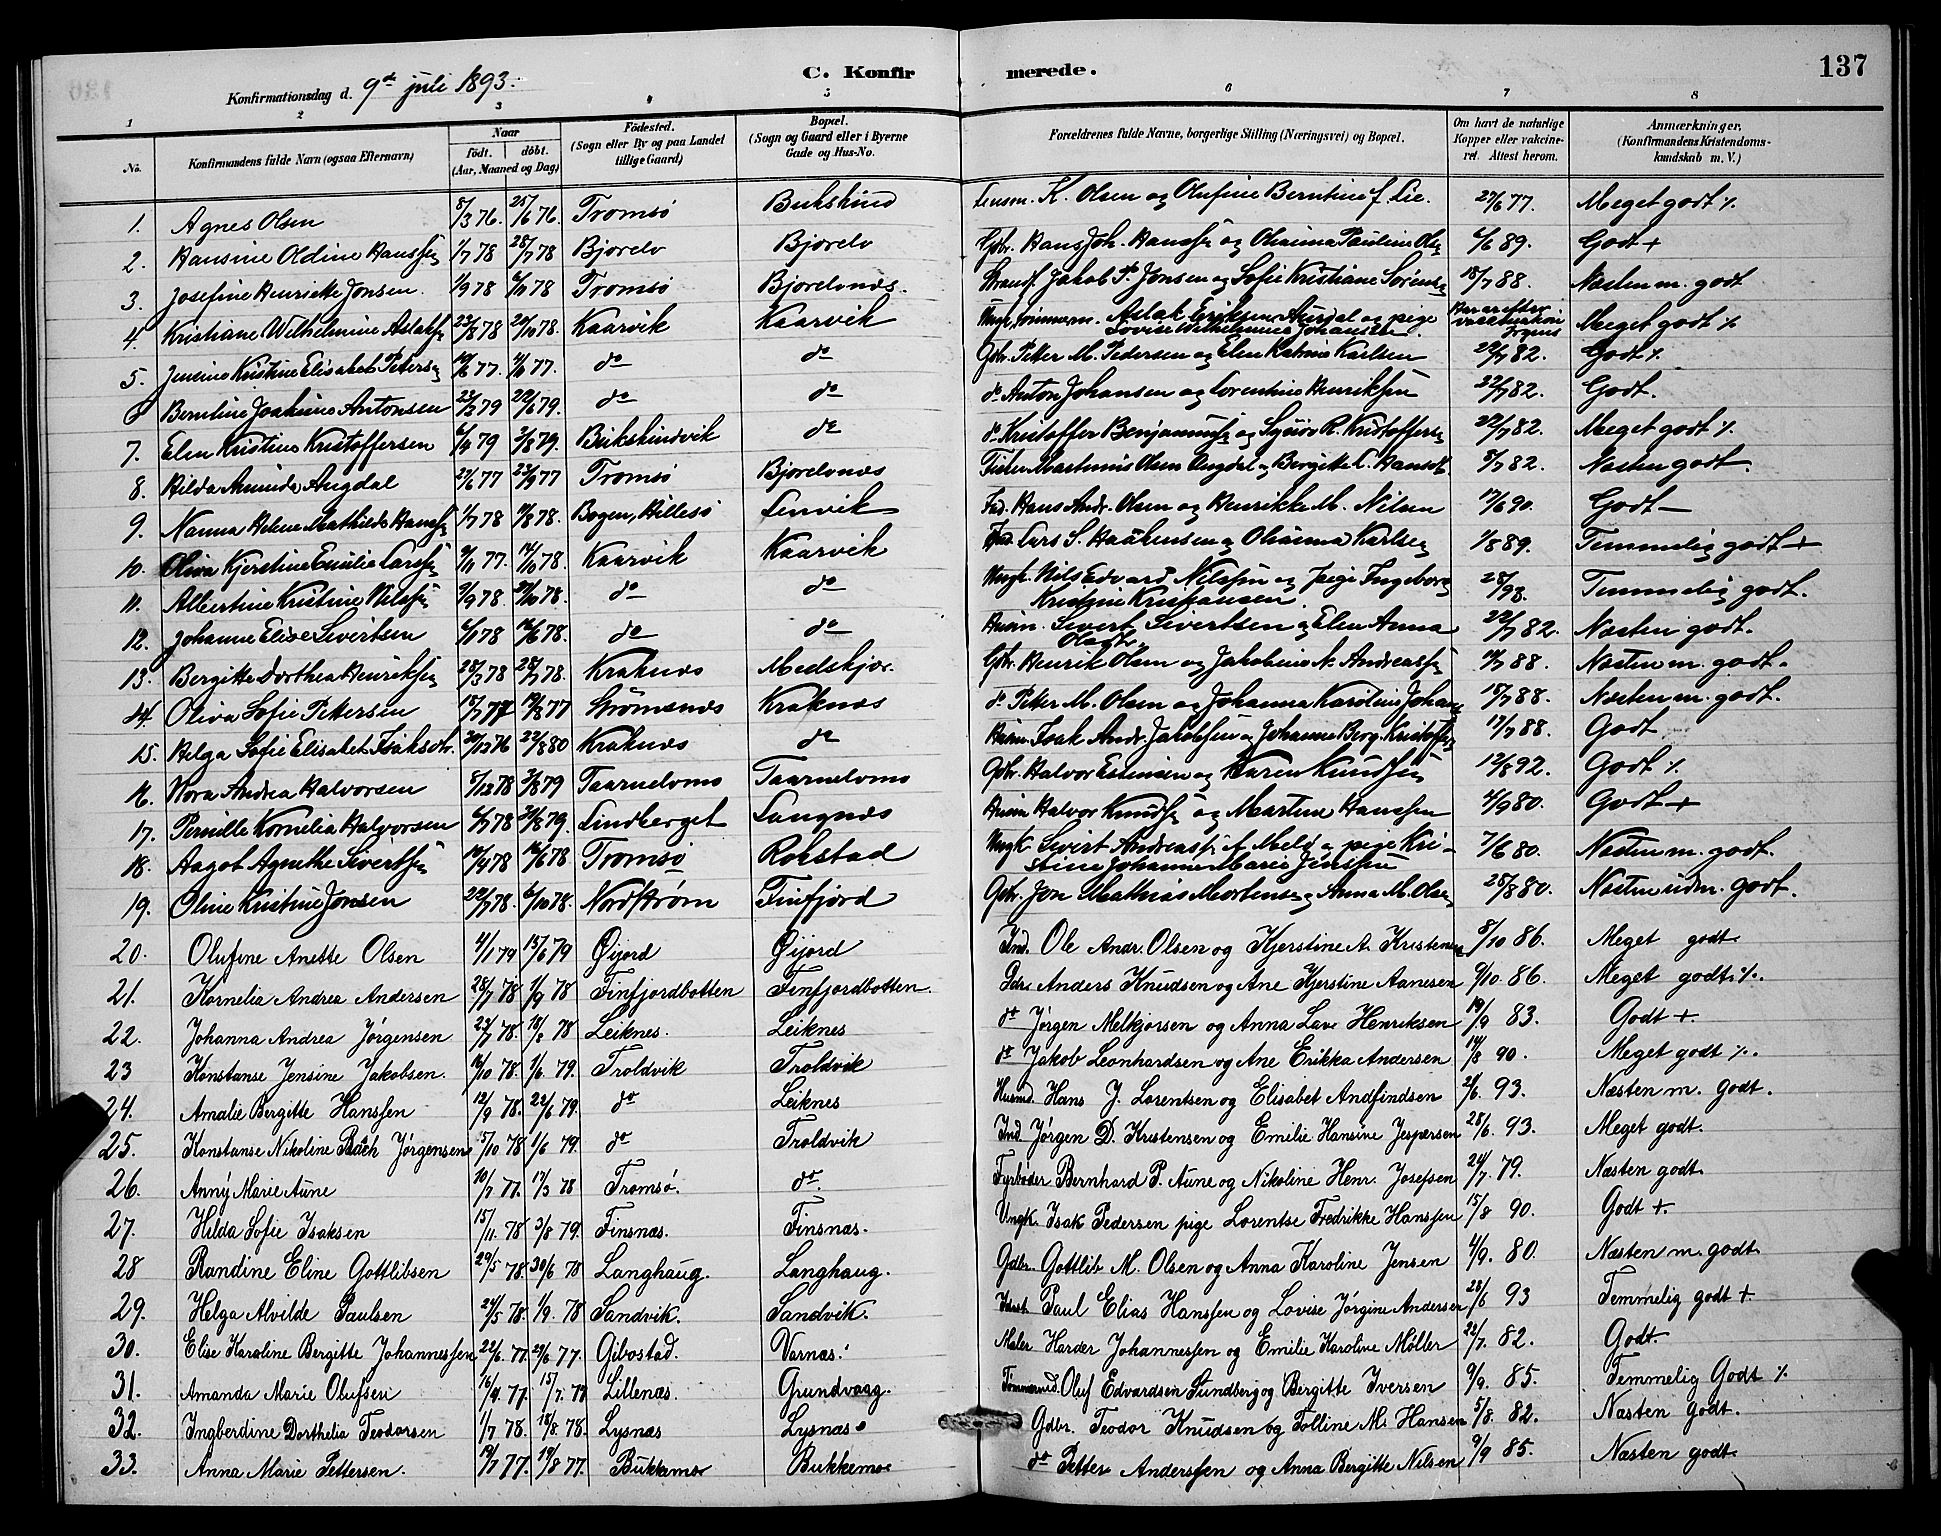 137
C. Konfirmerede.
Konfirmationsdag d. 9de juli 1893.
1 2 3 4 5 6 7 8
No.
Konfirmandens fulde Navn (ogsaa Efternavn)
Naar
födt. döbt.
(Aar, Maaned og Dag)
Födested.
(Sogn eller By og paa Landet
tillige Gaard)
Bopæl.
(Sogn og Gaard eller i Byerne
Gade og Hus-No.
Forældrenes fulde Navne, borgerlige Stilling (Næringsvei) og Bopæl.
Om havt de naturlige
Kopper eller vakcine-
ret. Attest herom.
Anmærkninger.
(Konfirmandens Kristendoms-
kundskab m. V.)
1. Agnes Olsen 8/3 76. 25/6 76. Tromsö Bukskind Lensm. K. Olsen og Olufine Berntine f. Lie. 27/6 77. Meget godt %
2. Hansine Oldine Hanssen 1/7 78 28/7 78 Bjorelv Bjorelv Gbr. Hans Joh. Hanssen og Olianna Pauline Olsen 6/6 89. Godt +
3. Josefine Henriette Jonsen. 1/9 78 6/10 78 Tromsö Bjorelvnes. Jakob P. Jonsen og Sofie Kristiane Sörensen 18/7 88. Næsten m. godt
4. Kristiane Wilhelmine Aslaksen 23/8 78 20/10 78. Kaarvik Kaarvik Aslak Eriksen og pige
Lovise Wilhelmine Johansen Meget godt %
5. Jensine Kristine Elisabet Petersen 77. 77. do do Gbr. Petter M. Pedersen og Elen Katrine Karlsen 22/7 82. Godt %
6 Berntine Joakime Antonsen 23/3 79 22/6 79. do do do Anton Johansen og Lorentine Henriksen 22/7 82. Godt.
7. Elen Kristine Kristoffersen 79 3/8 79. Bukskindvik do do Kristoffer Benjaminsen og R. Kristoffersen 22/7 82. Meget godt %
8. Hilda Aminda Angdal 22/6 77 23/9 77 Tromsö Bjorelvnes Martinius Olsen Angdal og Bergitte C. Hansdt. 8/7 82. Næsten godt.
9. Nanna Helene Mathilde Hanssen 1/7 78 78. Bogen, Hillesö Lenvik Hans Andr. Olsen og Henrikke M. Nilsen 17/6 90. Godt —
10. Oliva Kjerstine Emilie Larsen 77. 78. Kaarvik Kaarvik Lars S. Haakensen og Olianna Karlsen 1/8 89. Temmelig godt +
11. Albertine Kristine Nilssen 9/9 78 20/10 78. do do Ungk. Nils Edvard Nilssen og pige Ingeborg
Kristine Kristiansen. 28/ 93. Temmelig godt.
12. Johanne Elise Sivertsen 78 16/6 78. do do Husm. Sivert Sivertsen og Elen Anna
Olsdt. 22/7 82. Næsten godt.
13. Bergitte Dorthea Henriksen 28/3 78 28/7 78. Kraknes Medskjör. Gbr. Henrik Olsen og Jakobine N. Andreassen 88. Næsten m. godt.
14. Oliva Sofie Pettersen 17/7 77 19/8 77 Strömsnes Kraknes do Petter M. Olsen og Johanna Karoline Johansen 18/7 88. Næsten m. godt.
15. Helga Sofie Elisabet Isaksdr. 20/12 76 22/8 80 Kraknes do Husm. Isak Andr. Jakobsen og Johanne Berg. Kristoffersen 17/7 88. Godt
16. Nora Andrea Halvorsen 8/12 78 3/8 79 Taarnelvmo Taarnelvmo Gbr. Halvor Estensen og Karen Knudsen 12/8 92. Godt %
17. Pernille Kornelia Halvorsen 6/7 78 31/8 79. Lindberget Langnes Husm Halvor Knudsen og Martine Hanssen 4/9 80. Godt +
18. Aagot Agnethe Sivertsen 19/4 78 16/6 78 Tromsö Rokstad Ungk. Sivert Andreassen og pige Kri-
stine Johanne Marie Jenssen 7/6 80. Næsten m. godt.
19. Oline Kristine Jonsen 20/7 78. 6/10 78. Nordström Finfjord Gbr. Jon Mathias Mortensen og Anna M. Olsen 28/8 80. Næsten udm. godt.
20. Olufine Anette Olsen 4/1 79 15/6 79 Öijord Öijord Ind. Ole Andr. Olsen og Kjerstine A. Kristensen 5/10 86. Meget godt
21. Kornelia Andrea Andersen 28/7 78 1/9 78 Finfjordbotten Finfjordbotten. Gdbr. Anders Knudsen og Ane Kjerstine Aanesen 9/10 86. Meget godt %.
22. Johanna Andrea Jörgensen 23/7 78. 18/8 78 Leiknes. Leiknes do Jörgen Melkjorsen og Anna Lave Henriksen 19/9 83. Godt +.
23 Konstanse Jensine Jakobsen. 16/10 78. 1/6 79. Troldvik Troldvik do Jakob Leonhardsen og Ane Erikka Andersen 14/8 90. Meget godt %.
24. Amalie Bergitte Hanssen 12/9 78. 22/6 79. do Leiknes Husmd. Hans J. Lorentsen og Elisabet Andfindsen 2/6. 93. Næsten m. godt.
25. Konstanse Nikoline Bach Jörgensen 5/10 78 1/6 79. do Troldvik Ind Jörgen D. Kristensen og Emilie Hansine Jespersen 28/6. 93. Meget godt.
26. Anny Marie Aune 10/7 77. 17/3 78 Tromsö. do. Fyrböder Bernhard P. Aune og Nikoline Henr. Josefsen 24/7. 79. Næsten godt.
27. Hilda Sofie Isaksen 15/11. 78 3/8 79. Finsnæs. Finsnæs. Ungk. Isak Pedersen pige Lorentse Fredrikke Hanssen 15/8 90. Godt +.
28 Randine Eline Gottlibsen 29/5 78. 30/6 78 Langhaug. Langhaug. Gdbr. Gottlib M. Olsen og Anna Karoline Jensen 4/9. 80. Næsten m. godt.
29. Helga Alvilde Paulsen 24/5 78. 1/9. 78 Sandvik. Sandvik. Paul Elias Hanssen og Lovise Jörgine Andersen 28/6 93 Temmelig godt +
30. Elise Karoline Bergitte Johannessen 22/6. 77. 29/6 77. Gibostad. Varnæs. Maler Harder Johannessen og Emilie Karoline Möller 22/7. 82. Godt.
31. Amanda Marie Olufsen 16/4. 77. 15/7. 77 Lillenæs. Grundvaag. Tömmermd. Oluf Edvardsen Sundberg og Bergitte Iversen 9/9. 85. Temmelig Godt %
32. Ingberdine Dorthelia Teodorsen 1/7 78. 18/8. 78 Lysnæs Lysnæs Gdbr. Teodor Knudsen og Tolline M. Hansen 5/8. 82. Næsten godt.
33. Anna Marie Pettersen. 19/7 77. 19/8 77. Bukkemo Bukkemo do Petter Anderssen og Anna Bergitte Nilsen 9/9 85. Næsten godt